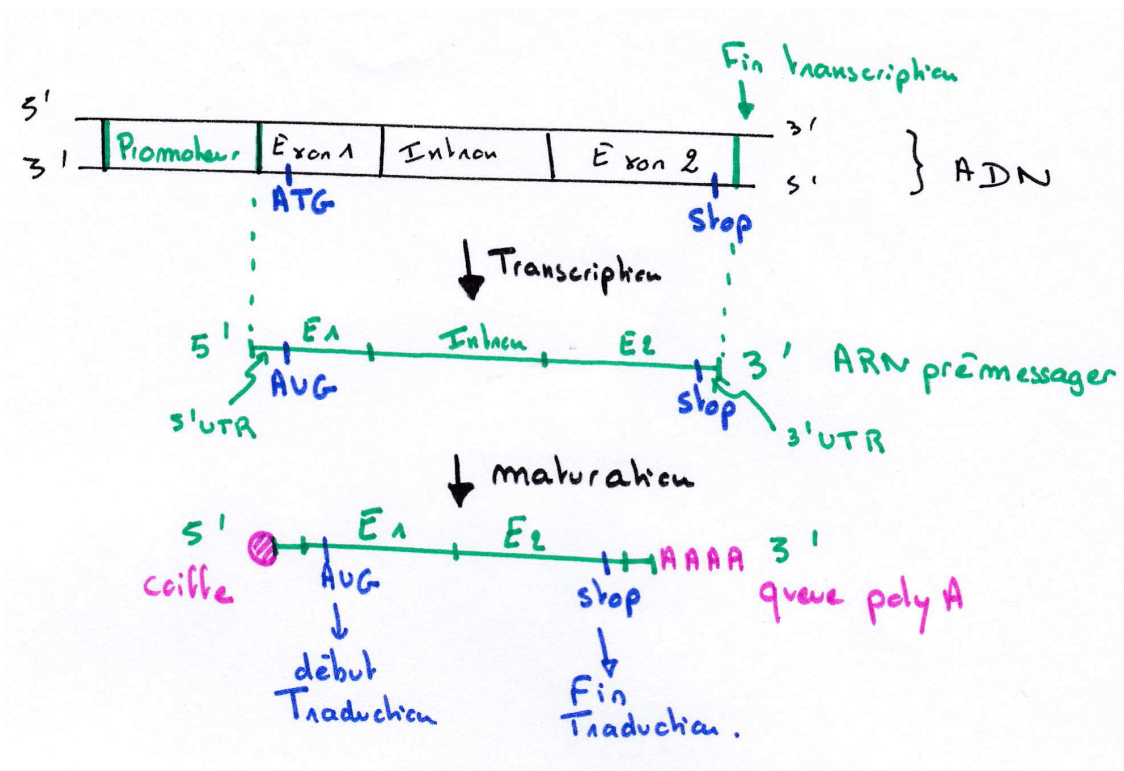 Fin transcription
5' 3'
3' Promoteur Exon 1 Intron Exon 2 5' } ADN
ATG stop
Transcription
5' E1 Intron E2 3' ARN prémessager
AUG stop
5'UTR 3'UTR
maturation
5' E1 E2 AAAA 3'
coiffe AUG stop queue poly A
début Fin
Traduction Traduction.